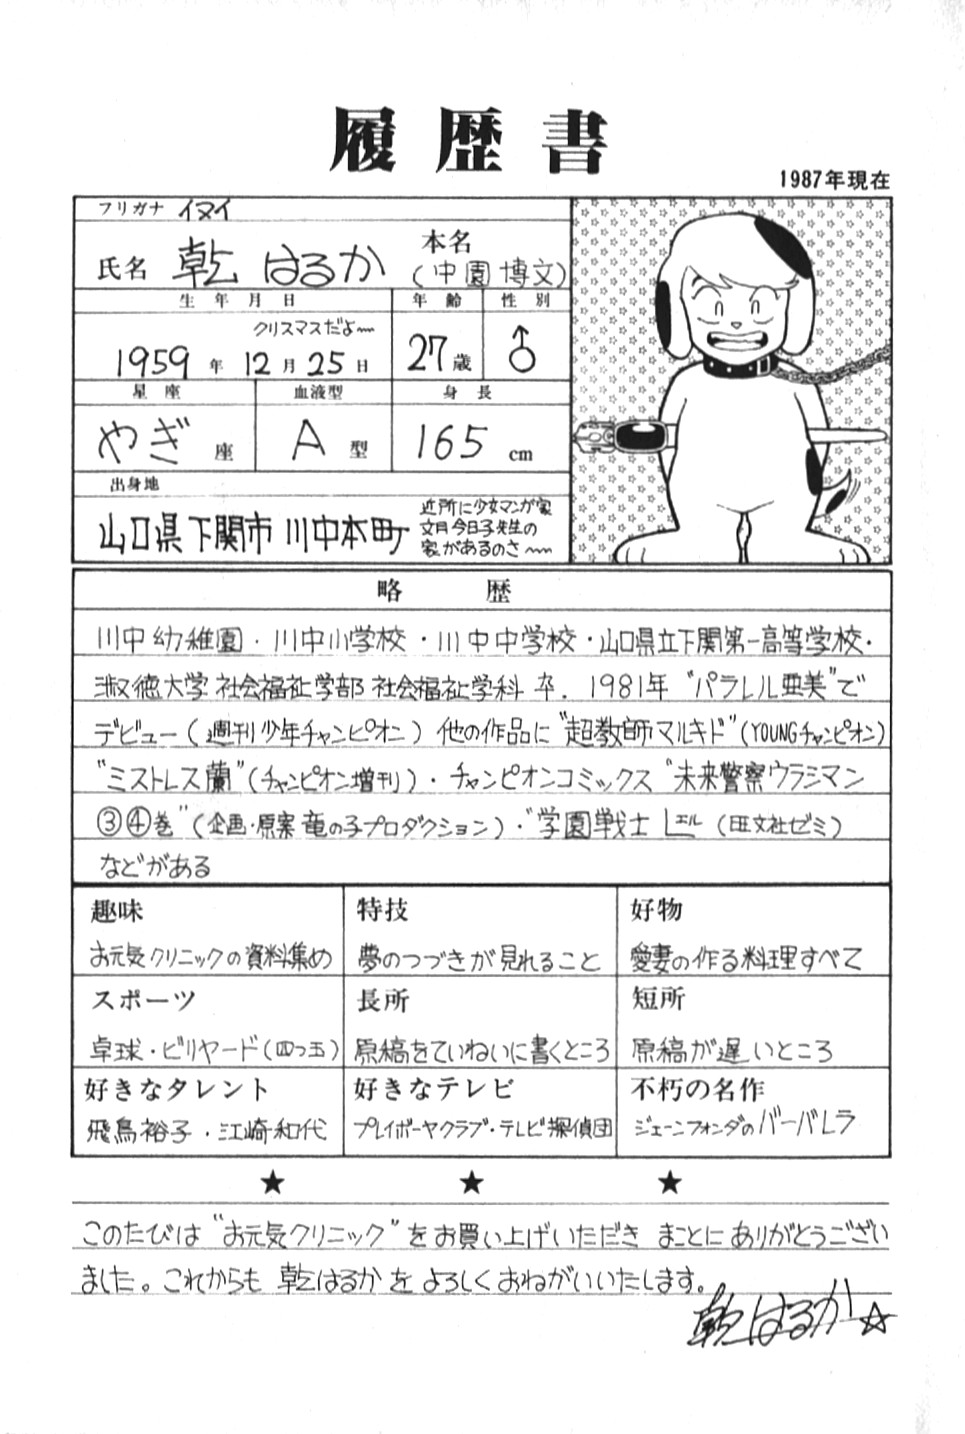 履歴書
1987年現在
フリガナ イヌイ
氏名 乾 はるか 本名
(中園博文)
生年月日 年齢 性別
クリスマスだよ〜
1959年12月25日 27歳 ♂
星座 血液型 身長
やぎ座 A型 165cm
出身地
山口県下関市川中本町
近所に少女マンガ家
文月今日子先生の
家があるのさ〜
略歴
川中幼稚園・川中小学校・川中中学校・山口県立下関第一高等学校・
淑徳大学社会福祉学部社会福祉学科卒.1981年“パラレル亜美”で
デビュー(週刊少年チャンピオン)他の作品に“超教師マルキド”(YOUNGチャンピオン)
“ミストレス蘭”(チャンピオン増刊)・チャンピオンコミックス“未来警察ウラシマン
③④巻”(企画・原案 竜の子プロダクション)・“学園戦士L エル(旺文社ゼミ)
などがある
趣味 特技 好物
お元気クリニックの資料集め 夢のつづきが見れること 愛妻の作る料理すべて
スポーツ 長所 短所
卓球・ビリヤード(四つ玉) 原稿をていねいに書くところ 原稿が遅いところ
好きなタレント 好きなテレビ 不朽の名作
飛鳥裕子・江崎和代 プレイボーヤクラブ・テレビ探偵団 ジェーンフォンダのバーバレラ
★ ★ ★
このたびは“お元気クリニック”をお買い上げいただき まことにありがとうござい
ました。これからも 乾はるかを よろしくおねがいいたします。
乾はるか☆